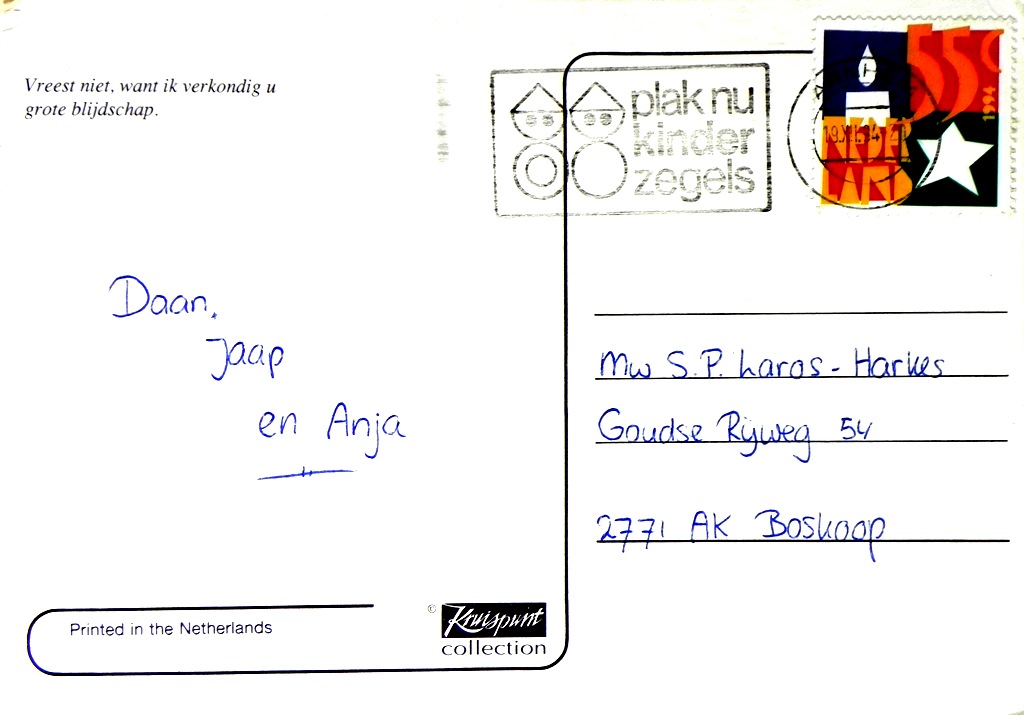 Vreest niet, want ik verkondig u
grote blijdschap.
plak nu
kinder
zegels
55c
1994
NEDER
LAND
19.XII.94
Daan,
Jaap
en Anja
Mw S.P. Laros - Harkes
Goudse Rijweg 54
2771 AK Boskoop
Printed in the Netherlands
© Kruispunt
collection